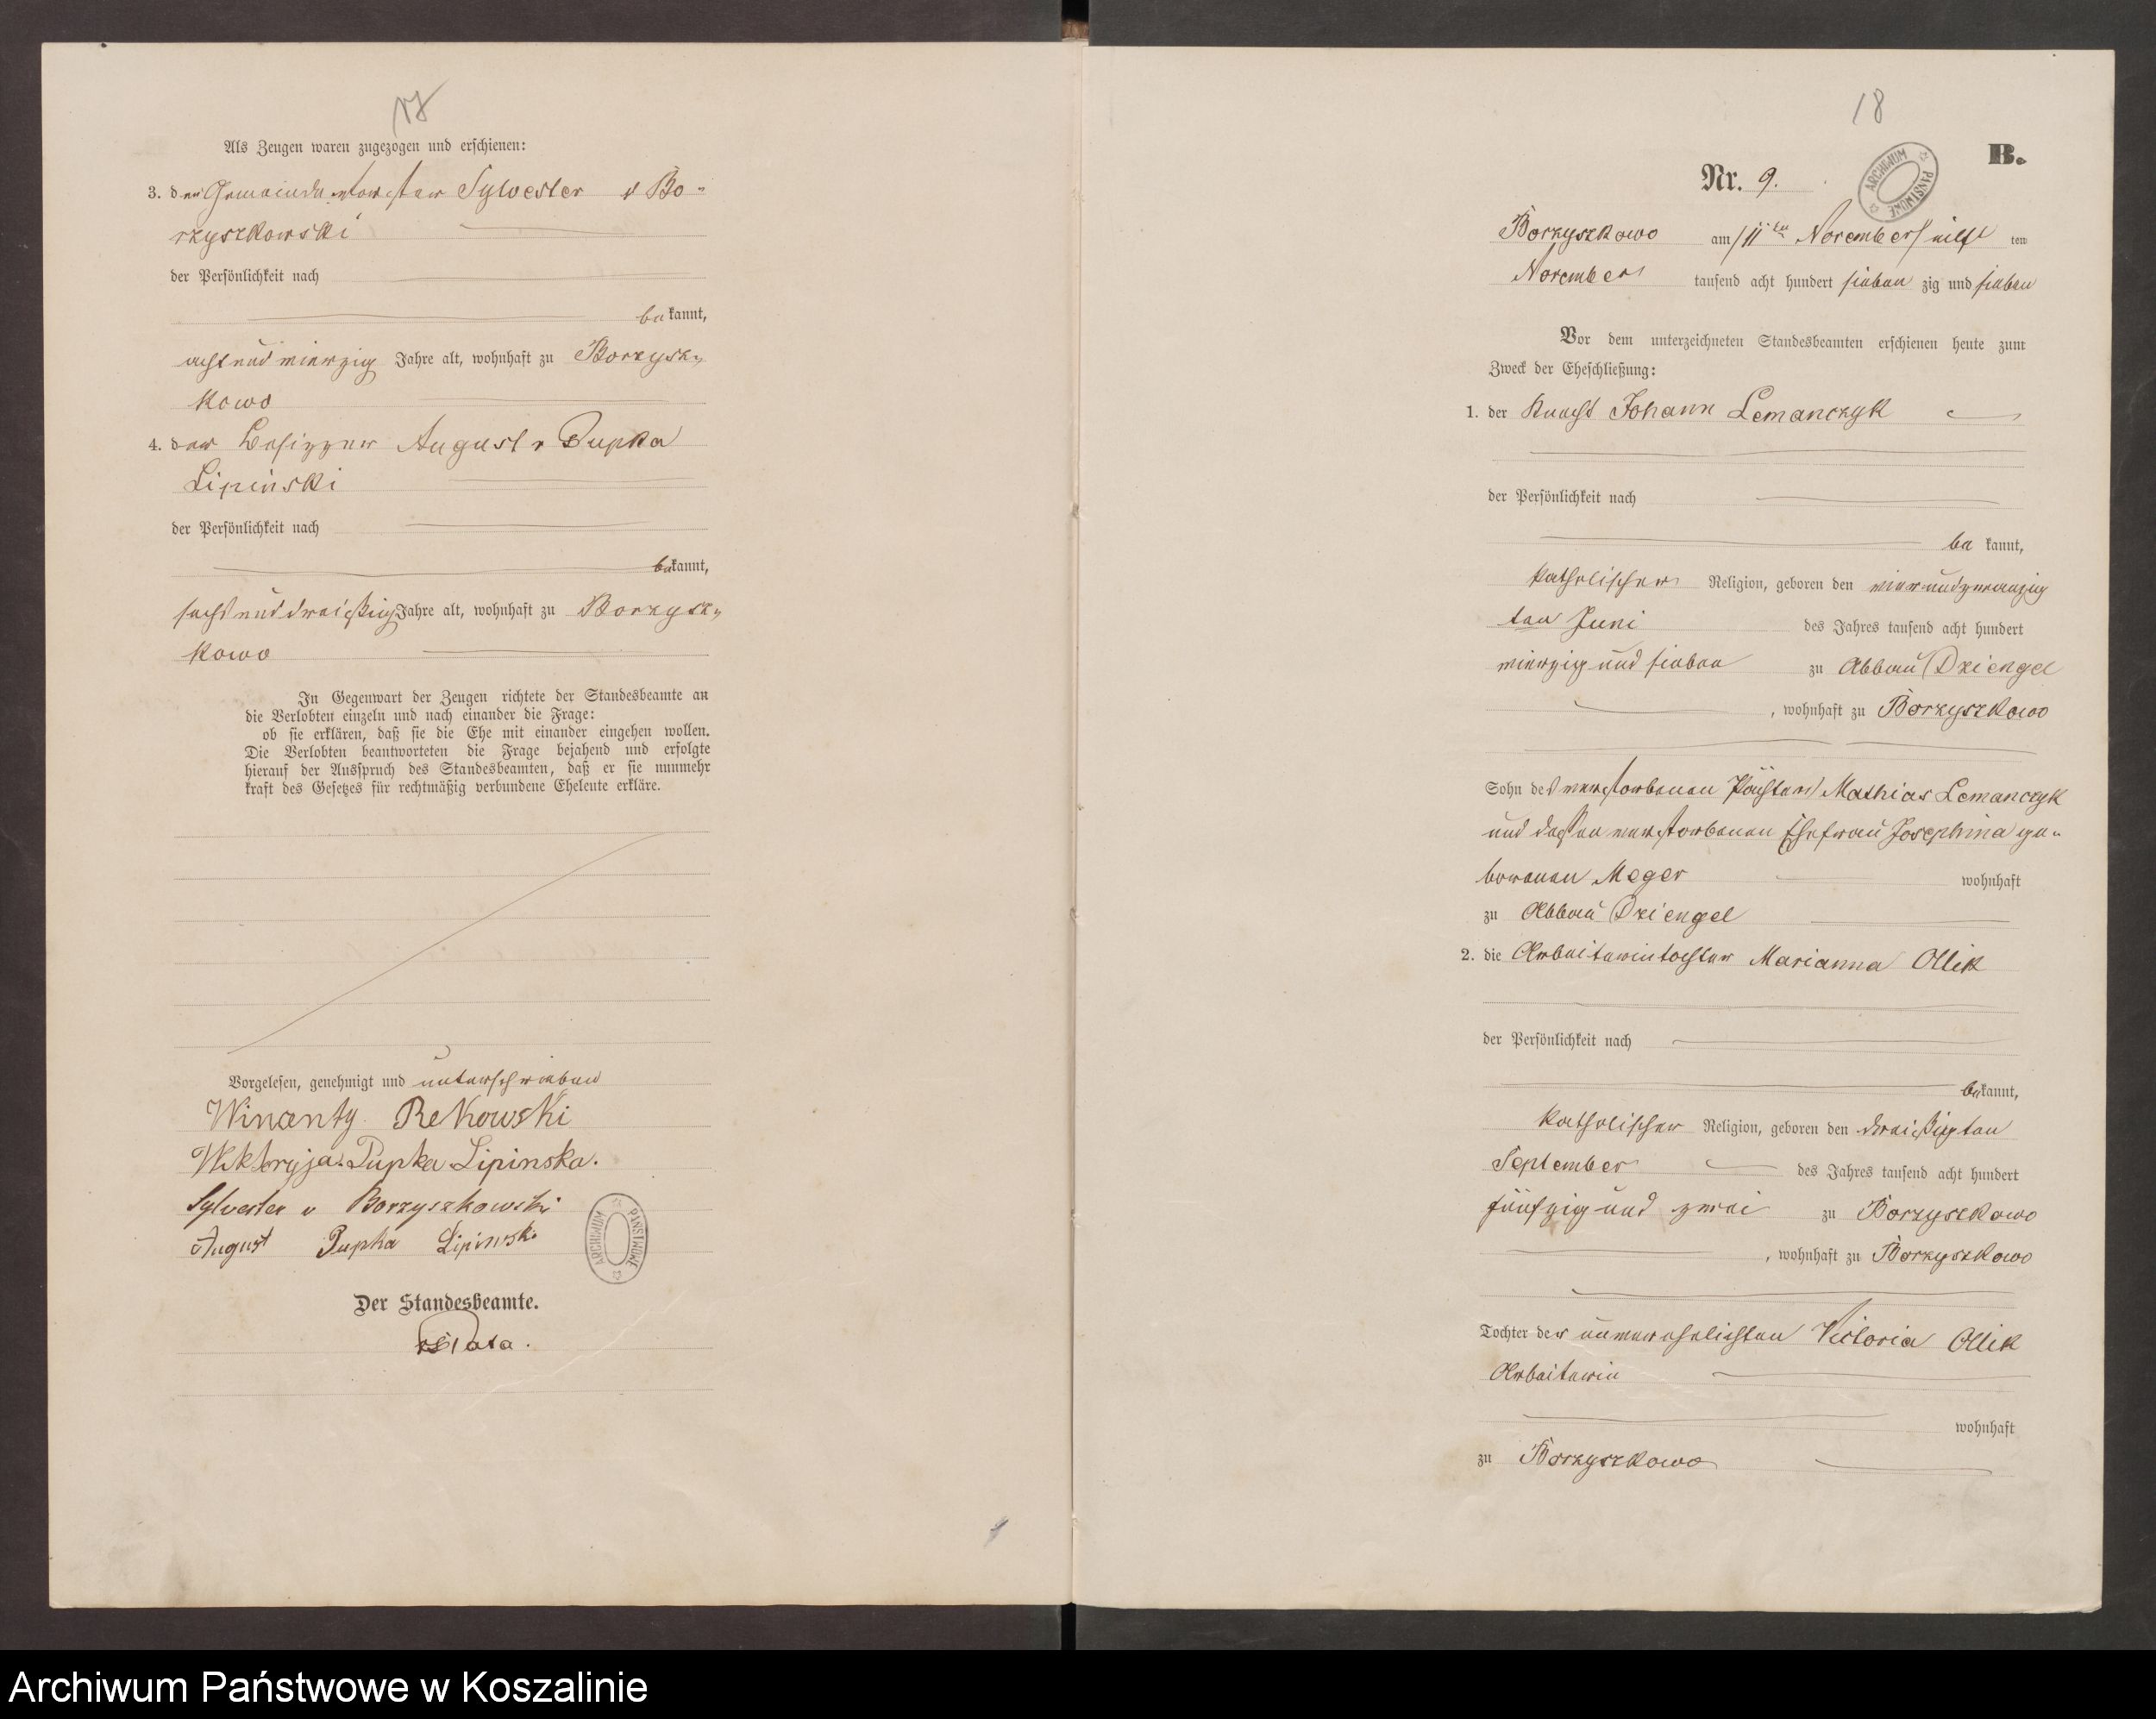 17
Als Zeugen waren zugezogen und erschienen:
3. den Gemeindevorsteher Sylvester v Bo-
rzyszkowski
der Persönlichkeit nach
bekannt,
achtundvierzig Jahre alt, wohnhaft zu Borzysz-
kowo
4. der Besitzer August v Pupka
Lipinski
der Persönlichkeit nach
bekannt,
sechsunddreißig Jahre alt, wohnhaft zu Borzysz-
kowo
In Gegenwart der Zeugen richtete der Standesbeamte an
die Verlobten einzeln und nach einander die Frage:
ob sie erklären, daß sie die Ehe mit einander eingehen wollen.
Die Verlobten beantworteten die Frage bejahend und erfolgte
hierauf der Ausspruch des Standesbeamten, daß er sie nunmehr
kraft des Gesetzes für rechtmäßig verbundene Eheleute erkläre.
Vorgelesen, genehmigt und unterschrieben
Wincenty Rekowski
Wiktoryja Pupka Lipinska.
Sylvester v Borzyszkowski
August Pupka Lipinski
ARCHIWUM PAŃSTWOWE
Der Standesbeamte.
18
B.
Nr. 9.
ARCHIWUM PAŃSTWOWE
Borzyszkowo am /11ten November/ eilf ten
November tausend acht hundert sieben zig und sieben
Vor dem unterzeichneten Standesbeamten erschienen heute zum
Zweck der Eheschließung:
1. der Knecht Johann Lemanczyk
der Persönlichkeit nach
be kannt,
katholischer Religion, geboren den vierundzwanzig
ten Juni des Jahres tausend acht hundert
vierzig und sieben zu Abbau Dziengel
, wohnhaft zu Borzyszkowo
Sohn des verstorbenen Pächters Mathias Lemanczyk
und dessen verstorbenen Ehefrau Josephina ge-
borenen Meger wohnhaft
zu Abbau Dziengel
2. die Arbeiterintochter Marianna Ollik
der Persönlichkeit nach
bekannt,
katholischer Religion, geboren den dreißigten
September des Jahres tausend acht hundert
fünfzig und zwei zu Borzyszkowo
, wohnhaft zu Borzyszkowo
Tochter der unverehelichten Victoria Ollik
Arbeiterin
wohnhaft
zu Borzyszkowo
Archiwum Państwowe w Koszalinie